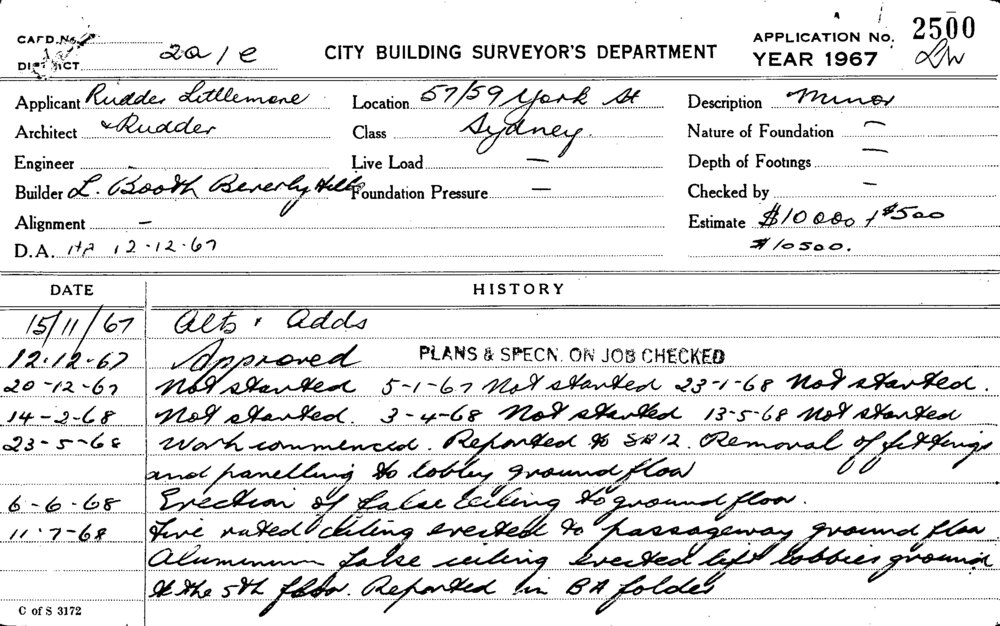 CARD No.
DISTRICT 2a/e
CITY BUILDING SURVEYOR'S DEPARTMENT
APPLICATION No. 2500
YEAR 1967
Applicant Rudder Littlemore
Location 57/59 York St
Description Minor
Architect & Rudder
Class Sydney.
Nature of Foundation —
Engineer -
Live Load —
Depth of Footings —
Builder L. Booth Beverly Hills
Foundation Pressure —
Checked by —
Alignment —
Estimate $10000 + $500
D.A. 12-12-67
$10500.
DATE HISTORY
15/11/67 Alts & Adds
12-12-67 Approved PLANS & SPECN. ON JOB CHECKED
20-12-67 Not started 5-1-67 Not started 23-1-68 Not started.
14-2-68 Not started. 3-4-68 Not started 13-5-68 Not started
23-5-68 Work commenced. Reported to SR12. Removal of fittings
and panelling to lobby ground floor
6-6-68 Erection of false ceiling to ground floor.
11-7-68 Fire rated ceiling erected to passageway ground floor
Aluminum false ceiling erected lift lobbies ground
to the 5th floor. Reported in BA folder
C of S 3172